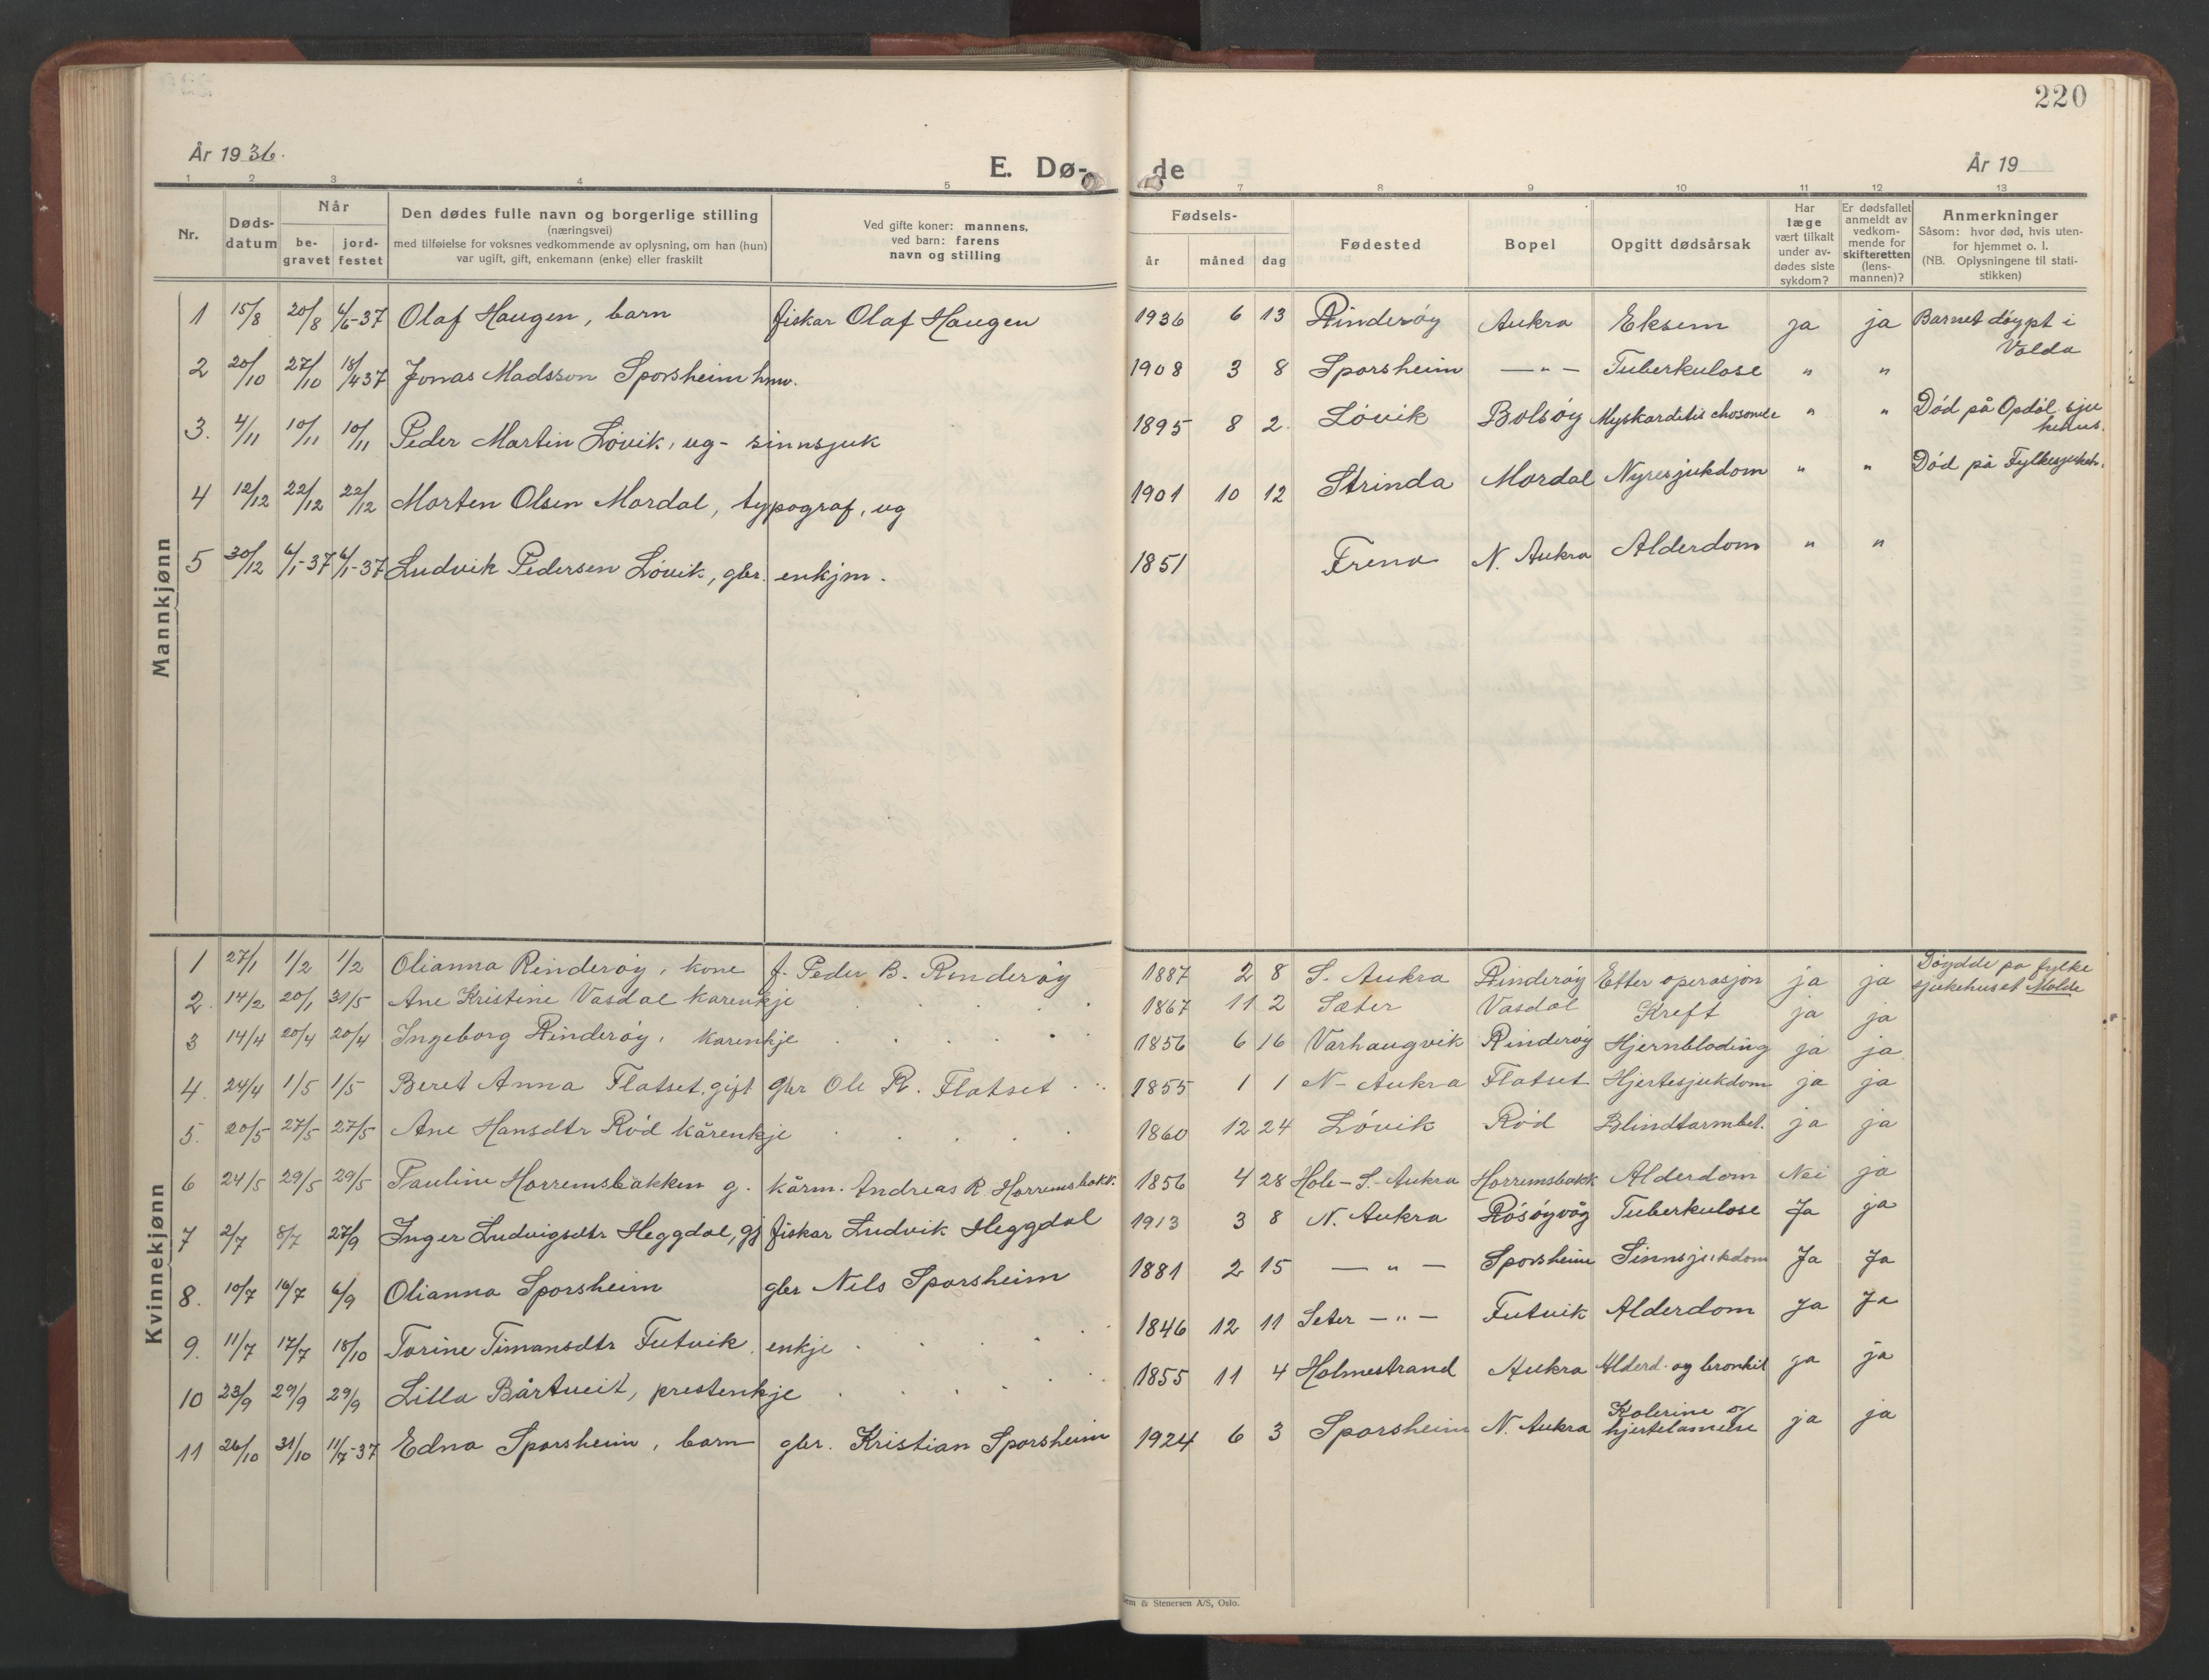 220
År 1936.
E. Dø- de
År 19
1 2 3 4 5 7 8 9 10 11 12 13
Nr.
Døds-
datum
Når
be-
gravet
jord-
festet
Den dødes fulle navn og borgerlige stilling
(næringsvei)
med tilføielse for voksnes vedkommende av oplysning, om han (hun)
var ugift, gift, enkemann (enke) eller fraskilt
Ved gifte koner: mannens,
ved barn: farens
navn og stilling
Fødsels-
år måned dag
Fødested
Bopel
Opgitt dødsårsak
Har
læge
vært tilkalt
under av-
dødes siste
sykdom?
Er dødsfallet
anmeldt av
vedkom-
mende for
skifteretten
(lens-
mannen)?
Anmerkninger
Såsom: hvor død, hvis uten-
for hjemmet o. l.
(NB. Oplysningene til stati-
stikken)
Mannkjønn
1 15/8 20/8 4/6-37 Olaf Haugen, barn fiskar Olaf Haugen 1936 6 13 Rinderøy Aukra Eksem ja ja Barnet døypt i
Volda
2 20/10 27/10 18/4 37 Jonas Madsson Sporsheim hmv. 1908 3 8 Sporsheim — " — Tuberkulose " "
3. 4/11 10/11 10/11 Peder Martin Løvik, ug - sinnsjuk 1895 8 2. Løvik Bolsøy " " Død på Opdøl sju
kehus.
4 12/12 22/12 22/12 Morten Olsen Mordal, typograf, ug 1901 10 12 Strinda Mordal Nyresjukdom " " Død på Fylkesjukeh.
5 30/12 6/1-37 6/1-37 Ludvik Pedersen Løvik, gbr. enkjm. 1851 Frena N. Aukra Alderdom " "
Kvinnekjønn
1 27/1 1/2 1/2 Olianna Rinderøy, kone f. Peder B. Rinderøy 1887 2 8 S. Aukra Rinderøy Etter operasjon ja ja Døydde på fylke
sjukehuset Molde
2. 14/2 20/1 31/5 Ane Kristine Vasdal kårenkje 1867 11 2 Sæter Vasdal Kreft ja ja
3 14/4 20/4 20/4 Ingeborg Rinderøy, kårenkje 1856 6 16 Varhaugvik Rinderøy Hjernbløding ja ja
4. 24/4 1/5 1/5 Beret Anna Flatset, gift gbr Ole R. Flatset 1855 1 1 N- Aukra Flatset Hjertesjukdom ja ja
5. 20/5 27/5 27/5 Ane Hansdtr Rød kårenkje 1860 12 24 Løvik Rød Blindtarmbet. ja ja
6 24/5 29/5 29/5 Pauline Horremsbakken g. kårm. Andreas R. Horremsbakk. 1856 4 28 Hole - S. Aukra Horremsbakk Alderdom Nei ja
7 2/7 8/7 27/9 Inger Ludvigsdtr Heggdal, gj fiskar Ludvik Heggdal 1913 3 8 N. Aukra Røsøyvåg Tuberkulose Ja ja
8. 10/7 16/7 6/9 Olianna Sporsheim gbr Nils Sporsheim 1881 2 15 — " — Sporsheim Sinnsjukdom Ja Ja
9. 11/7 17/7 18/10 Torine Timansdtr Futvik, enkje 1846 12 11 Seter — " — Futvik Alderdom Ja Ja
10 23/9 29/9 29/9 Lilla Bårtveit, prestenkje 1855 11 4 Holmestrand Aukra Alderd. og bronkit ja ja
11 26/10 31/10 11/7-37 Edna Sporsheim, barn gbr. Kristian Sporsheim 1924 6 3 Sporsheim N. Aukra Kolerine og
hjertelamelse ja ja
& Stenersen A/S, Oslo.